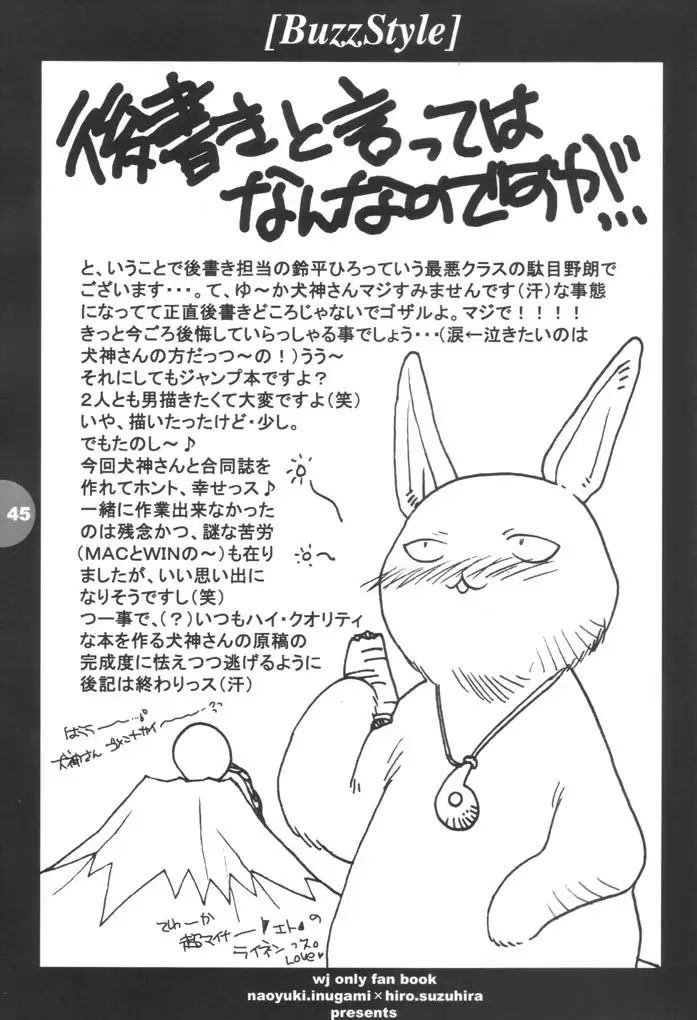 [BuzzStyle]
後書きと言っては
なんなのですが…
と、いうことで後書き担当の鈴平ひろっていう最悪クラスの駄目野朗で
ございます・・・。て、ゆ～か犬神さんマジすみませんです（汗）な事態
になってて正直後書きどころじゃないでゴザルよ。マジで！！！！
きっと今ごろ後悔していらっしゃる事でしょう・・・（涙←泣きたいのは
犬神さんの方だっつ～の！）うう～
それにしてもジャンプ本ですよ？
２人とも男描きたくて大変ですよ（笑）
いや、描いたったけど・少し。
でもたのし～♪
今回犬神さんと合同誌を
作れてホント、幸せっス♪
一緒に作業出来なかった
のは残念かつ、謎な苦労
（ＭＡＣとＷＩＮの～）も在り
ましたが、いい思い出に
なりそうですし（笑）
つ一事で、（？）いつもハイ・クオリティ
な本を作る犬神さんの原稿の
完成度に怯えつつ逃げるように
後記は終わりっス（汗）
45
犬神さん ゴメンナサイ～
てゆーか
超マイナー
エト の
ライネンっス。
Love
wj only fan book
naoyuki.inugami×hiro.suzuhira
presents